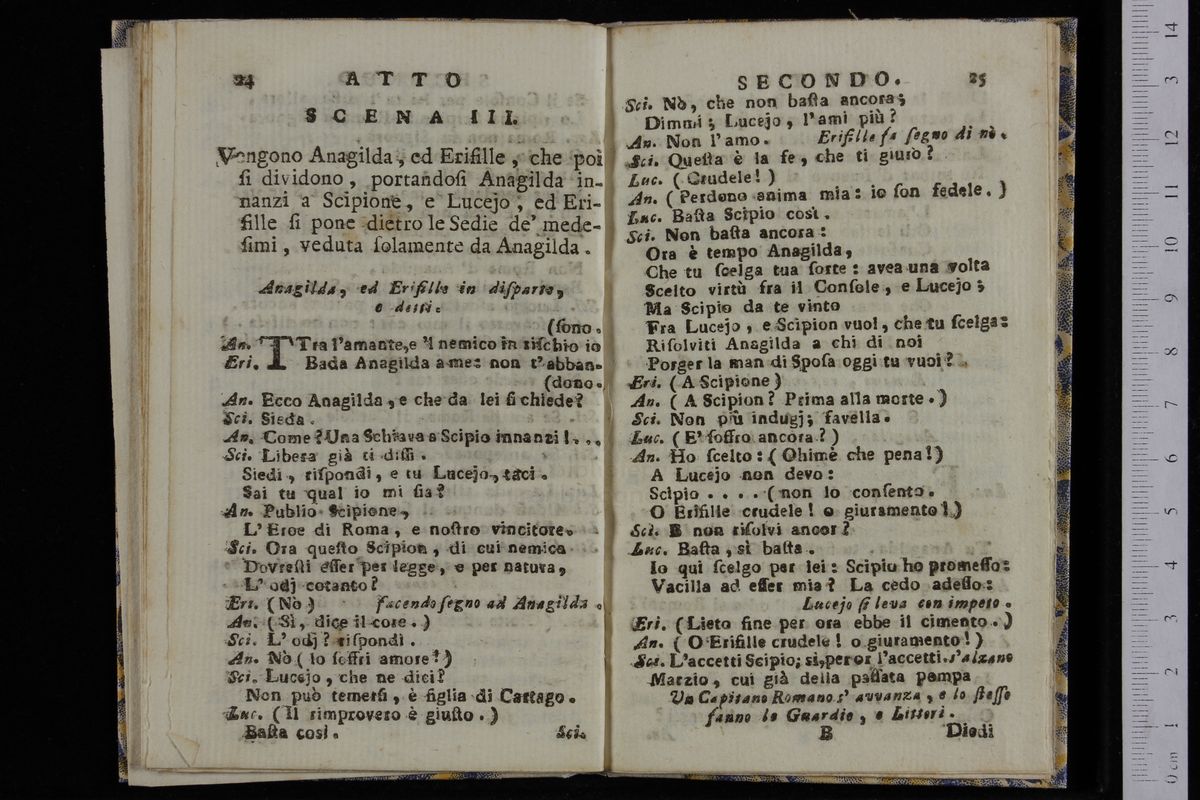 24 ATTO
SCENA III.
Vengono Anagilda, ed Erifille, che poi
ſi dividono, portandoſi Anagilda in-
nanzi a Scipione, e Lucejo, ed Eri-
fille ſi pone dietro le Sedie de' mede-
ſimi, veduta ſolamente da Anagilda.
Anagilda, ed Erifille in diſparte,
e detti.
(ſono.
An. TTra l'amante, e 'l nemico in riſchio io
Eri. Bada Anagilda a me: non t'abban-
(dono.
An. Ecco Anagilda, e che da lei ſi chiede?
Sci. Sieda.
An. Come? Una Schiava a Scipio innanzi!...
Sci. Libera già ti diſſi.
Siedi, riſpondi, e tu Lucejo, taci.
Sai tu qual io mi ſia?
An. Publio Scipione,
L'Eroe di Roma, e noſtro vincitore.
Sci. Ora queſto Scipion, di cui nemica
Dovreſti eſſer per legge, e per natura,
L' odj cotanto?
Eri. (Nò) facendo ſegno ad Anagilda.
An. (Sì, dice il core.)
Sci. L' odj? riſpondi.
An. Nò (lo ſoffri amore!)
Sci. Lucejo, che ne dici?
Non può temerſi, è figlia di Cartago.
Luc. (Il rimprovero è giuſto.)
Baſta così. Sci.
SECONDO. 25
Sci. Nò, che non baſta ancora;
Dimmi; Lucejo, l'ami più?
An. Non l'amo. Erifille fa ſegno di nò.
Sci. Queſta è la fe, che ti giurò?
Luc. (Crudele!)
An. (Perdono anima mia: io ſon fedele.)
Luc. Baſta Scipio così.
Sci. Non baſta ancora:
Ora è tempo Anagilda,
Che tu ſcelga tua ſorte: avea una volta
Scelto virtù fra il Conſole, e Lucejo;
Ma Scipio da te vinto
Fra Lucejo, e Scipion vuol, che tu ſcelga:
Riſolviti Anagilda a chi di noi
Porger la man di Spoſa oggi tu vuoi?
Eri. (A Scipione)
An. (A Scipion? Prima alla morte.)
Sci. Non più indugj; favella.
Luc. (E' ſoffro ancora?)
An. Ho ſcelto: (Ohimè che pena!)
A Lucejo non devo:
Scipio.... (non lo conſento.
O Erifille crudele! o giuramento!)
Sci. E non riſolvi ancor?
Luc. Baſta, sì baſta.
Io qui ſcelgo per lei: Scipio ho promeſſo:
Vacilla ad eſſer mia? La cedo adeſſo:
Lucejo ſi leva con impeto.
Eri. (Lieto fine per ora ebbe il cimento.)
An. (O Erifille crudele! o giuramento!)
Sci. L'accetti Scipio; sì, per or l'accetti. s'alzano
Marzio, cui già della paſſata pompa
Un Capitano Romano s' avvanza, e lo ſteſſo
fanno le Guardie, e Littori.
B Diedi